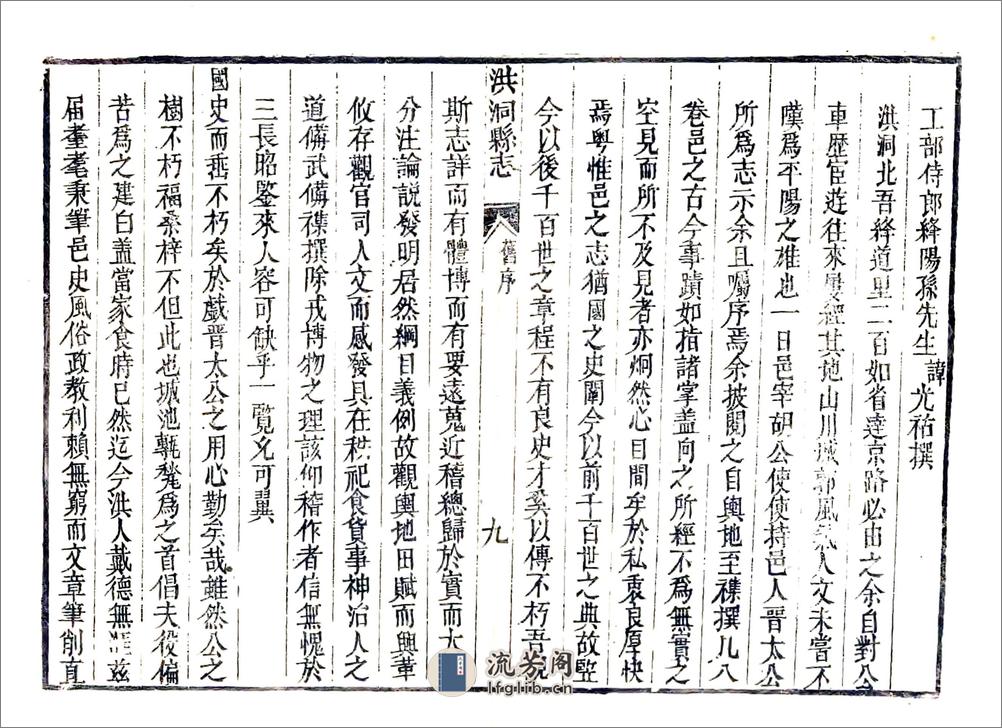 工部侍郎絳陽孫先生諱光祐撰
洪洞北吾絳道里二百如省達京路必由之余自對公
車歷宦遊往來屢經其地山川城郭風氣人文未嘗不
嘆爲平陽之雄也一日邑宰胡公使使持邑人晋太公
所爲志示余且屬序焉余披閱之自輿地至襍撰凡八
卷邑之古今事蹟如指諸掌盖向之所經不爲無實之
空見而所不及見者亦炯然心目間矣於私衷良厚快
焉粤惟邑之志猶國之史闡今以前千百世之典故監
今以後千百世之章程不有良史才奚以傳不朽吾
洪洞縣志
舊序
九
斯志詳而有體博而有要遠蒐近稽總歸於實而大
分注論說發明居然綱目義例故觀輿地田賦而興革
攸存觀官司人文而感發具在秩祀食貨事神治人之
道備武備襍撰除戎博物之理該仰稽作者信無愧於
三長昭鑒來人容可缺乎一覽允可翼
國史而垂不朽矣於戲晋太公之用心勤矣哉雖然公之
樹不朽福桑梓不但此也城池甎甃爲之首倡夫役偏
苦爲之建白盖當家食時已然迄今洪人戴德無涯兹
届耋耄秉筆邑史風俗政教利賴無窮而文章筆削直
流芳阁
lfglib.cn